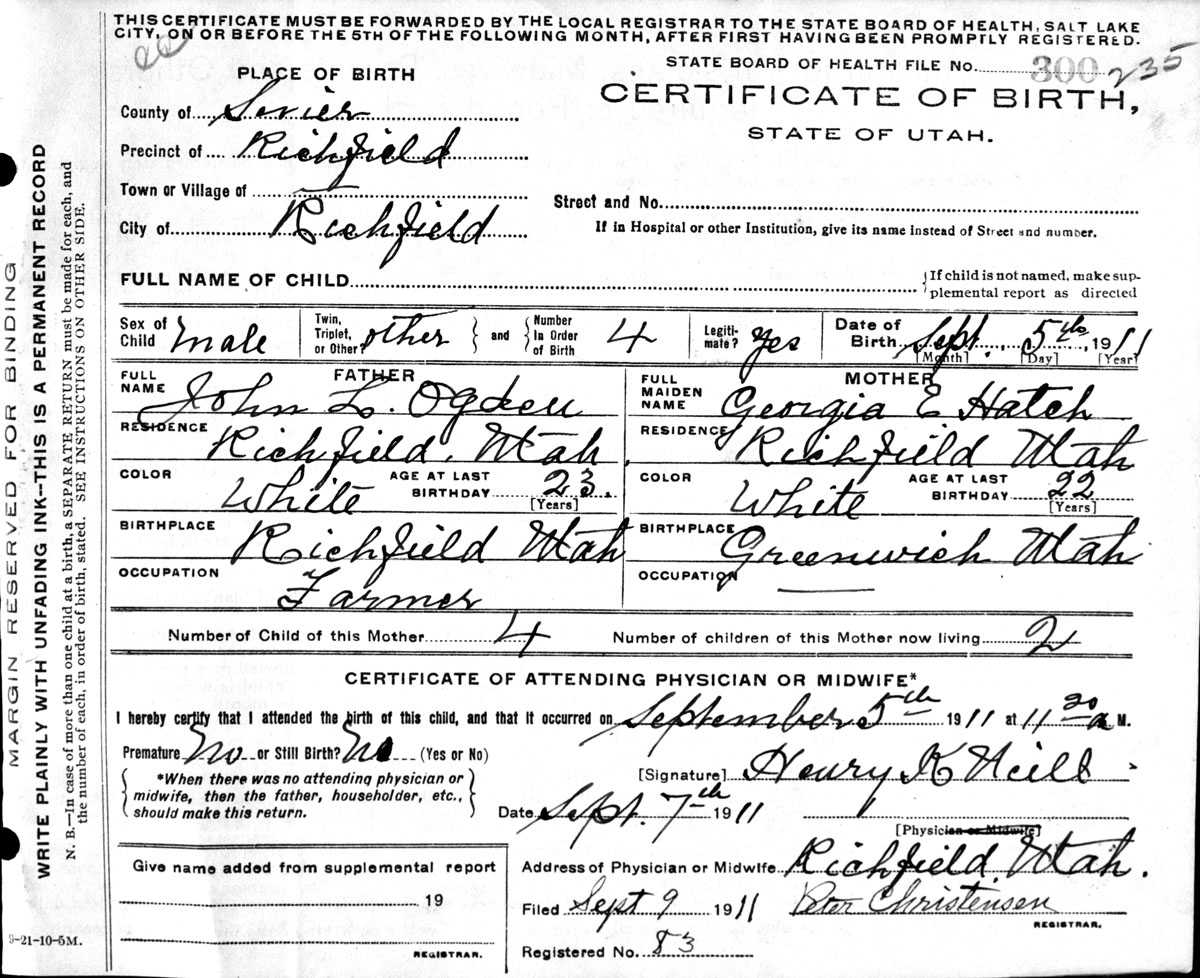 THIS CERTIFICATE MUST BE FORWARDED BY THE LOCAL REGISTRAR TO THE STATE BOARD OF HEALTH, SALT LAKE
CITY, ON OR BEFORE THE 5TH OF THE FOLLOWING MONTH, AFTER FIRST HAVING BEEN PROMPTLY REGISTERED.
STATE BOARD OF HEALTH FILE No. 300 235
PLACE OF BIRTH
CERTIFICATE OF BIRTH,
STATE OF UTAH.
County of Sevier
Precinct of Richfield
Town or Village of
Street and No.
City of Richfield
If in Hospital or other Institution, give its name instead of Street and number.
FULL NAME OF CHILD
{If child is not named, make sup-
plemental report as directed
Sex of Child Male
Twin, Triplet, or Other? other } and { Number In Order of Birth 4
Legiti-mate? Yes
Date of Birth Sept. 5th, 1911
[Month] [Day] [Year]
FATHER
FULL NAME John L. Ogden
RESIDENCE Richfield, Utah
COLOR White AGE AT LAST BIRTHDAY 23. [Years]
BIRTHPLACE Richfield Utah
OCCUPATION Farmer
MOTHER
FULL MAIDEN NAME Georgia E Hatch
RESIDENCE Richfield Utah
COLOR White AGE AT LAST BIRTHDAY 22 [Years]
BIRTHPLACE Greenwich Utah
OCCUPATION
Number of Child of this Mother 4 Number of children of this Mother now living 2
CERTIFICATE OF ATTENDING PHYSICIAN OR MIDWIFE*
I hereby certify that I attended the birth of this child, and that it occurred on September 5th 1911 at 11 20 a M.
Premature No or Still Birth? No (Yes or No)
{ *When there was no attending physician or
midwife, then the father, householder, etc.,
should make this return. }
[Signature] Henry K Neill
Date Sept. 7th 1911
[Physician or Midwife]
Address of Physician or Midwife Richfield, Utah.
Give name added from supplemental report
19
REGISTRAR.
Filed Sept 9 1911 Peter Christensen
REGISTRAR.
Registered No. 83
9-21-10-5M.
MARGIN RESERVED FOR BINDING
WRITE PLAINLY WITH UNFADING INK--THIS IS A PERMANENT RECORD
N. B.—In case of more than one child at a birth, a SEPARATE RETURN must be made for each, and
the number of each, in order of birth, stated. SEE INSTRUCTIONS ON OTHER SIDE.